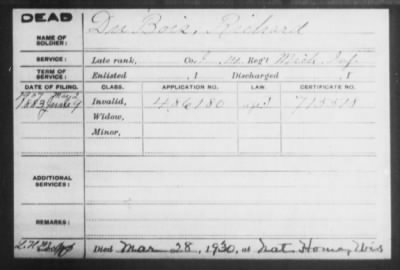 DEAD
NAME OF SOLDIER: Du Bois, Richard
SERVICE: Late rank, Co. I, 14 Reg't Mich Inf.
TERM OF SERVICE: Enlisted , 1 Discharged , 1
DATE OF FILING. CLASS. APPLICATION NO. LAW. CERTIFICATE NO.
1883 Invalid, 486180 713518
Widow,
Minor,
ADDITIONAL SERVICES:
REMARKS:
Died Mar 28, 1930, at Nat. Home, Wis